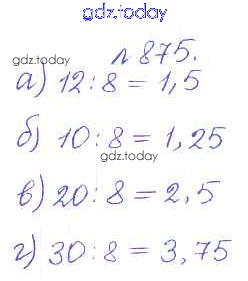 gdz.today
gdz.today
№875.
а) 12:8 = 1,5
б) 10:8 = 1,25
gdz.today
в) 20:8 = 2,5
г) 30:8 = 3,75